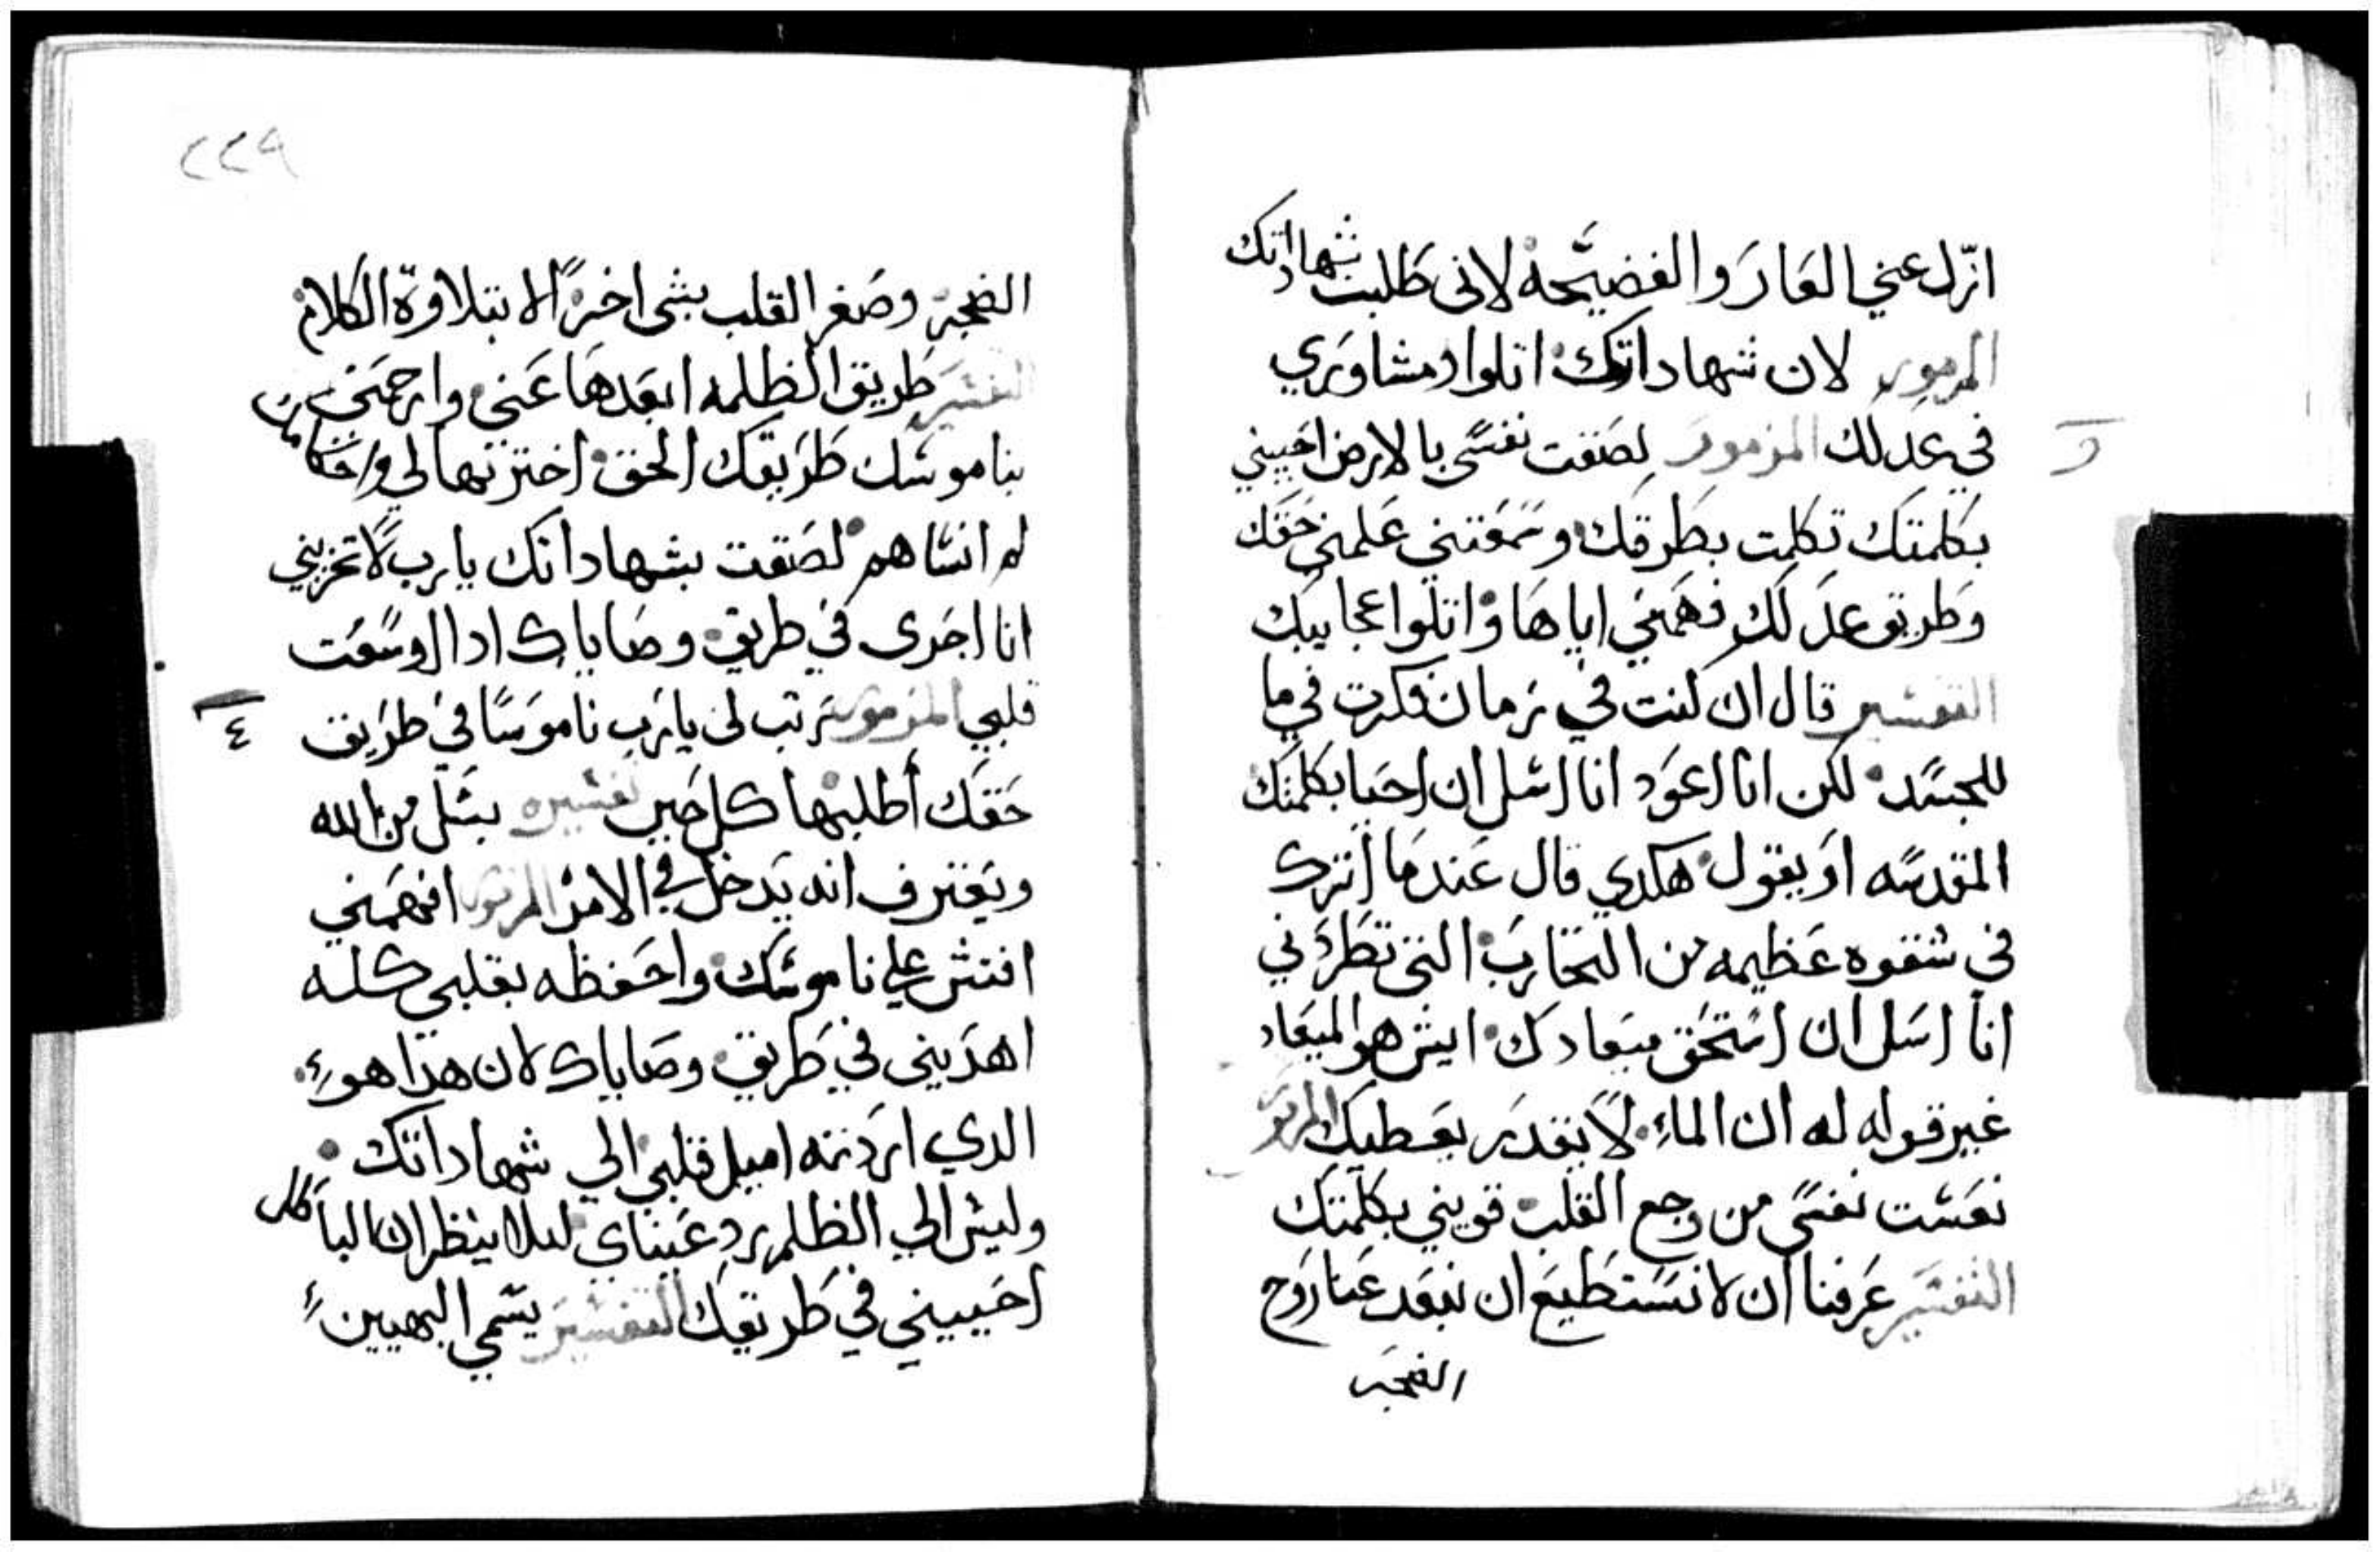 انزل عني العار والفضيحه لاني طلبت شهاداتك
المزمور لان شهاداتك اتلوا ومشاورتي
في عدلك المزمور لصقت نفسي بالارض احييني
د
بكلمتك تكلمت بطرقك وسمعتني علمني حقك
وطريق عدلك فهمني اياها واتلوا عجايبك
التفسير قال ان كنت في زمان فكرت في ما
للجسد لكن انا اعود انا اسل ان احيا بكلمتك
المقدسه او يقول هكدي قال عندما اترك
في شقوه عظيمه من التجارب التي تطردني
انا اسل ان استحق ميعادك ايش هو الميعاد
غير قوله له ان الماء لا يقدر يعطيك المزمور
نعست نفسي من وجع القلب قويني بكلمتك
التفسير عرفنا ان لا نستطيع ان نبعد عنا روح
الضجر
٢٢٩
الضجر وصغر القلب بشي اخر الا بتلاوة الكلام
التفسير طريق الظلمه ابعدها عني وارحمني
بناموسك طريقك الحق اخترتها لي واحكامك
لم انساهم لصقت بشهاداتك يارب لا تخزيني
انا اجري في طريق وصاياك ادا اوسعت
قلبي المزمور رتب لي يارب ناموسا في طريق
٤
حقك أطلبها كل حين تفسيره يسل من الله
ويعترف انه يدخل في الامر المزمور افهمني
افتش علي ناموسك واحفظه بقلبي كله
اهديني في طريق وصاياك لان هدا هو
الدي اردته اميل قلبي الي شهاداتك
وليس الي الظلم رد عيناي ليلا ينظران الباطل
احييني في طريقك التفسير يسمي البهيين